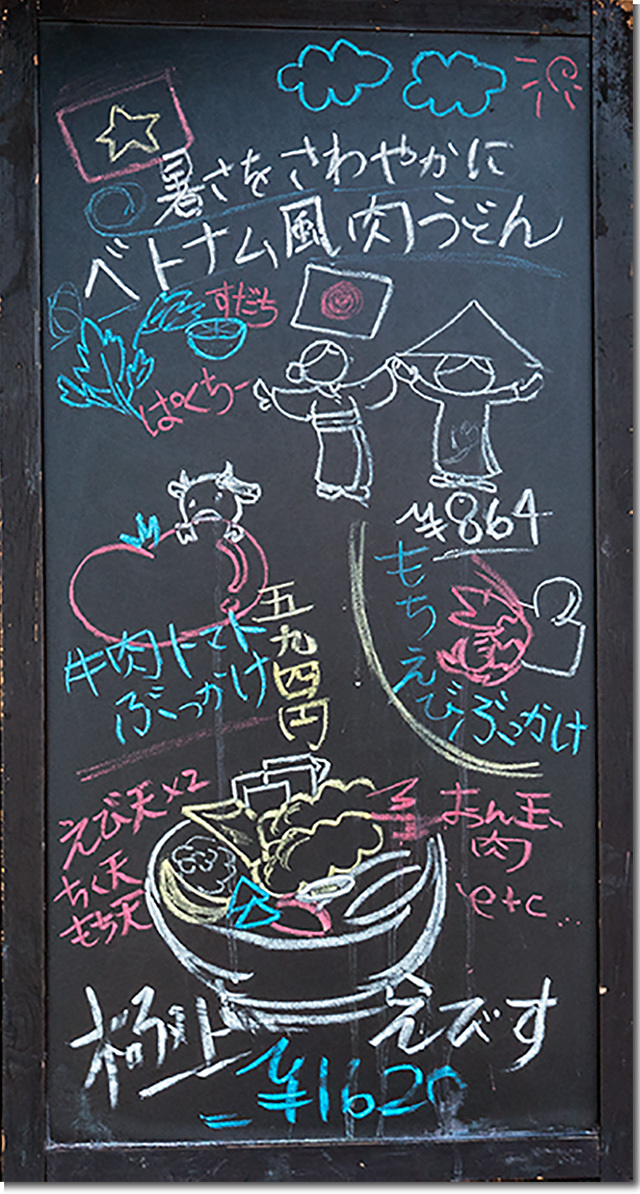 暑さをさわやかに
ベトナム風肉うどん
すだち
ぱくちー
¥864
もちえびぶっかけ
牛肉トマト
ぶっかけ
五九四円
えび天×2
ちく天
もち天
おん玉、
肉
etc...
極上 えびす
¥1620